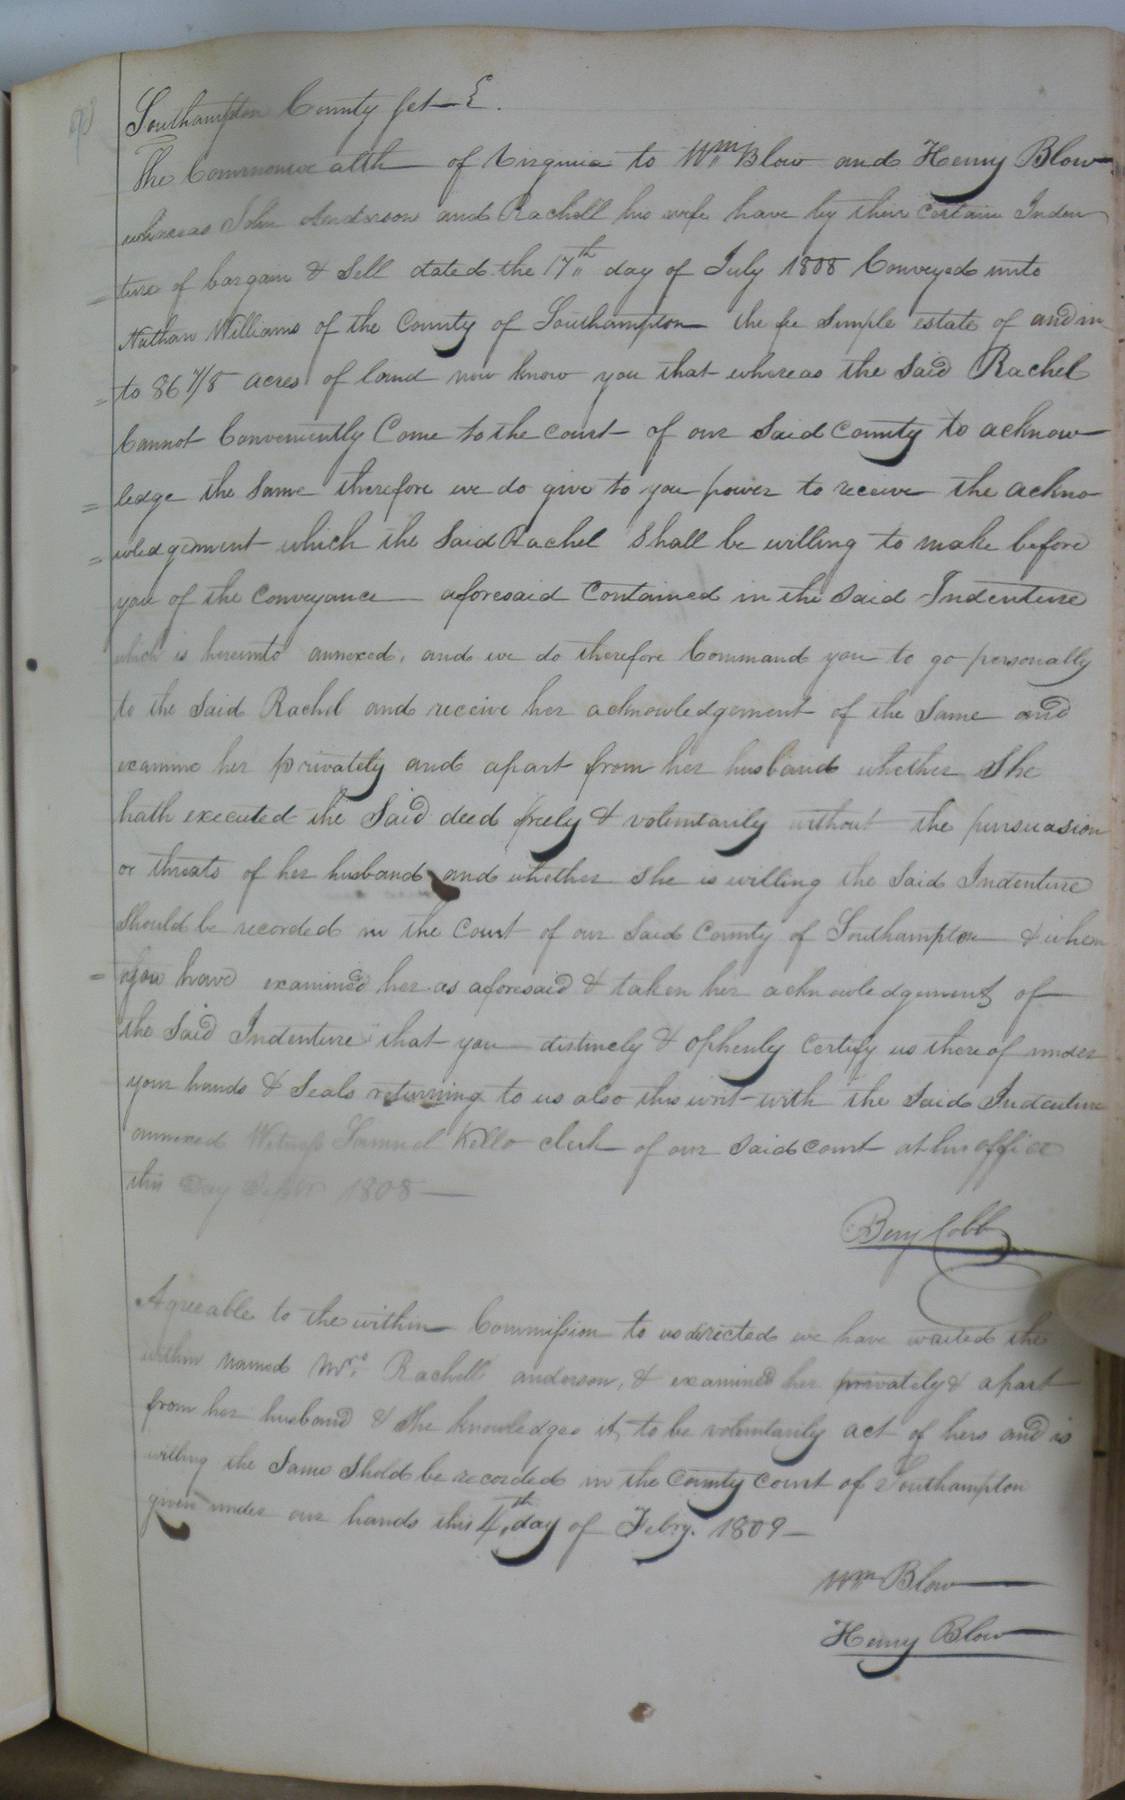 Southampton County Set
The Commonwealth of Virginia to Wm Blow and Henry Blow
whereas John Anderson and Rachell his wife have by their certain Inden
= ture of bargain & Sell dated the 17th day of July 1808 Conveyed unto
Nathan Williams of the County of Southampton the fee Simple estate of and in
= to 86 7/8 acres of land now know you that whereas the Said Rachel
Cannot Conveniently Come to the court of our Said county to acknow
= ledge the Same therefore we do give to you power to receive the ackno
= wledgement which the Said Rachel Shall be willing to make before
you of the conveyance aforesaid contained in the Said Indenture
which is hereunto annexed, and we do therefore Command you to go personally
to the Said Rachel and receive her acknowledgement of the Same and
examine her privately and apart from her husband whether She
hath executed the Said deed freely & voluntarily without the pursuasion
or threats of her husband and whether She is willing the Said Indenture
Should be recorded in the Court of our Said County of Southampton & when
= you have examined her as aforesaid & taken her acknowledgement of
the Said Indenture that you distincly & ophenly certify us thereof under
your hands & Seals returning to us also this writ with the Said Indenture
annexed Witness Samuel Kello clerk of our Said court at his office
this Day 1808
Benj Cobb
Agreeable to the within Commission to us directed we have waited the
within named Mrs. Rachell anderson, & examined her privately & apart
from her husband & She knowledges it, to be voluntarily act of hers and is
willing the Same Shold be recorded in the County court of Southampton
given under our hands this 4th day of Febry. 1809
Wm Blow
Henry Blow